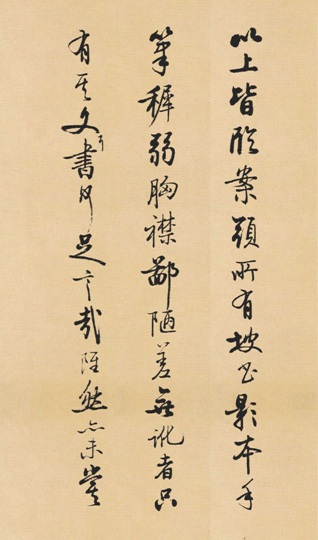 以上皆臨案頭所有坡書影本手
筆穉弱胸襟鄙陋差無訛者只
有其文耳書何足言哉雖然亦未嘗